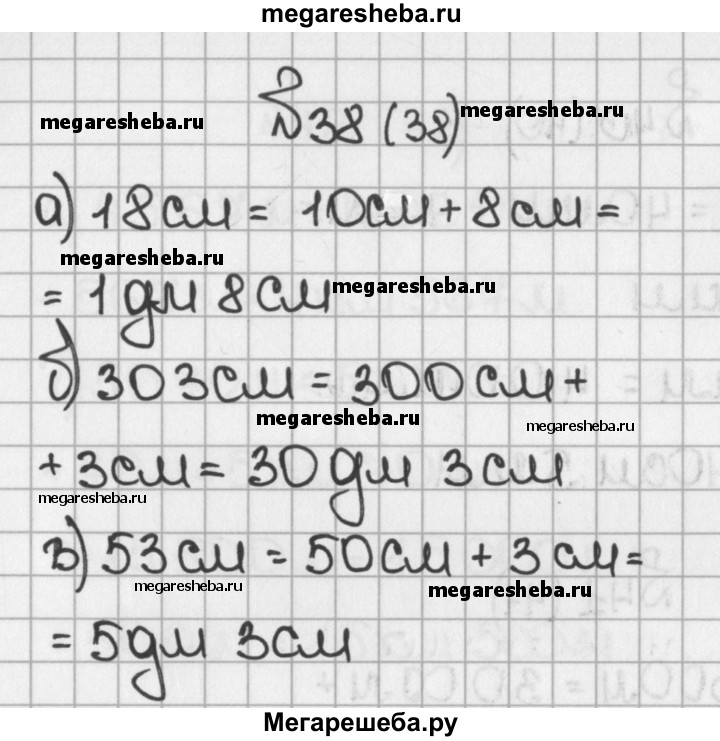 megaresheba.ru
№38 (38) megaresheba.ru
megaresheba.ru
а) 18см = 10см + 8см =
megaresheba.ru
= 1дм 8см megaresheba.ru
б) 303см = 300см +
megaresheba.ru megaresheba.ru
+ 3см = 30дм 3см
megaresheba.ru
в) 53см = 50см + 3см =
megaresheba.ru megaresheba.ru
= 5дм 3см
Мегарешеба.ру